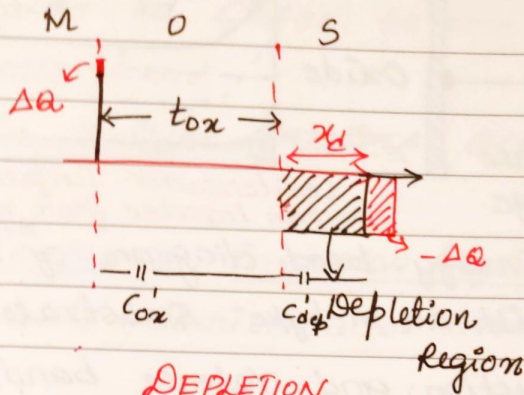 M O S
ΔQ
t_ox
x_d
-ΔQ
C'ox
C'dep
Depletion
Region
DEPLETION